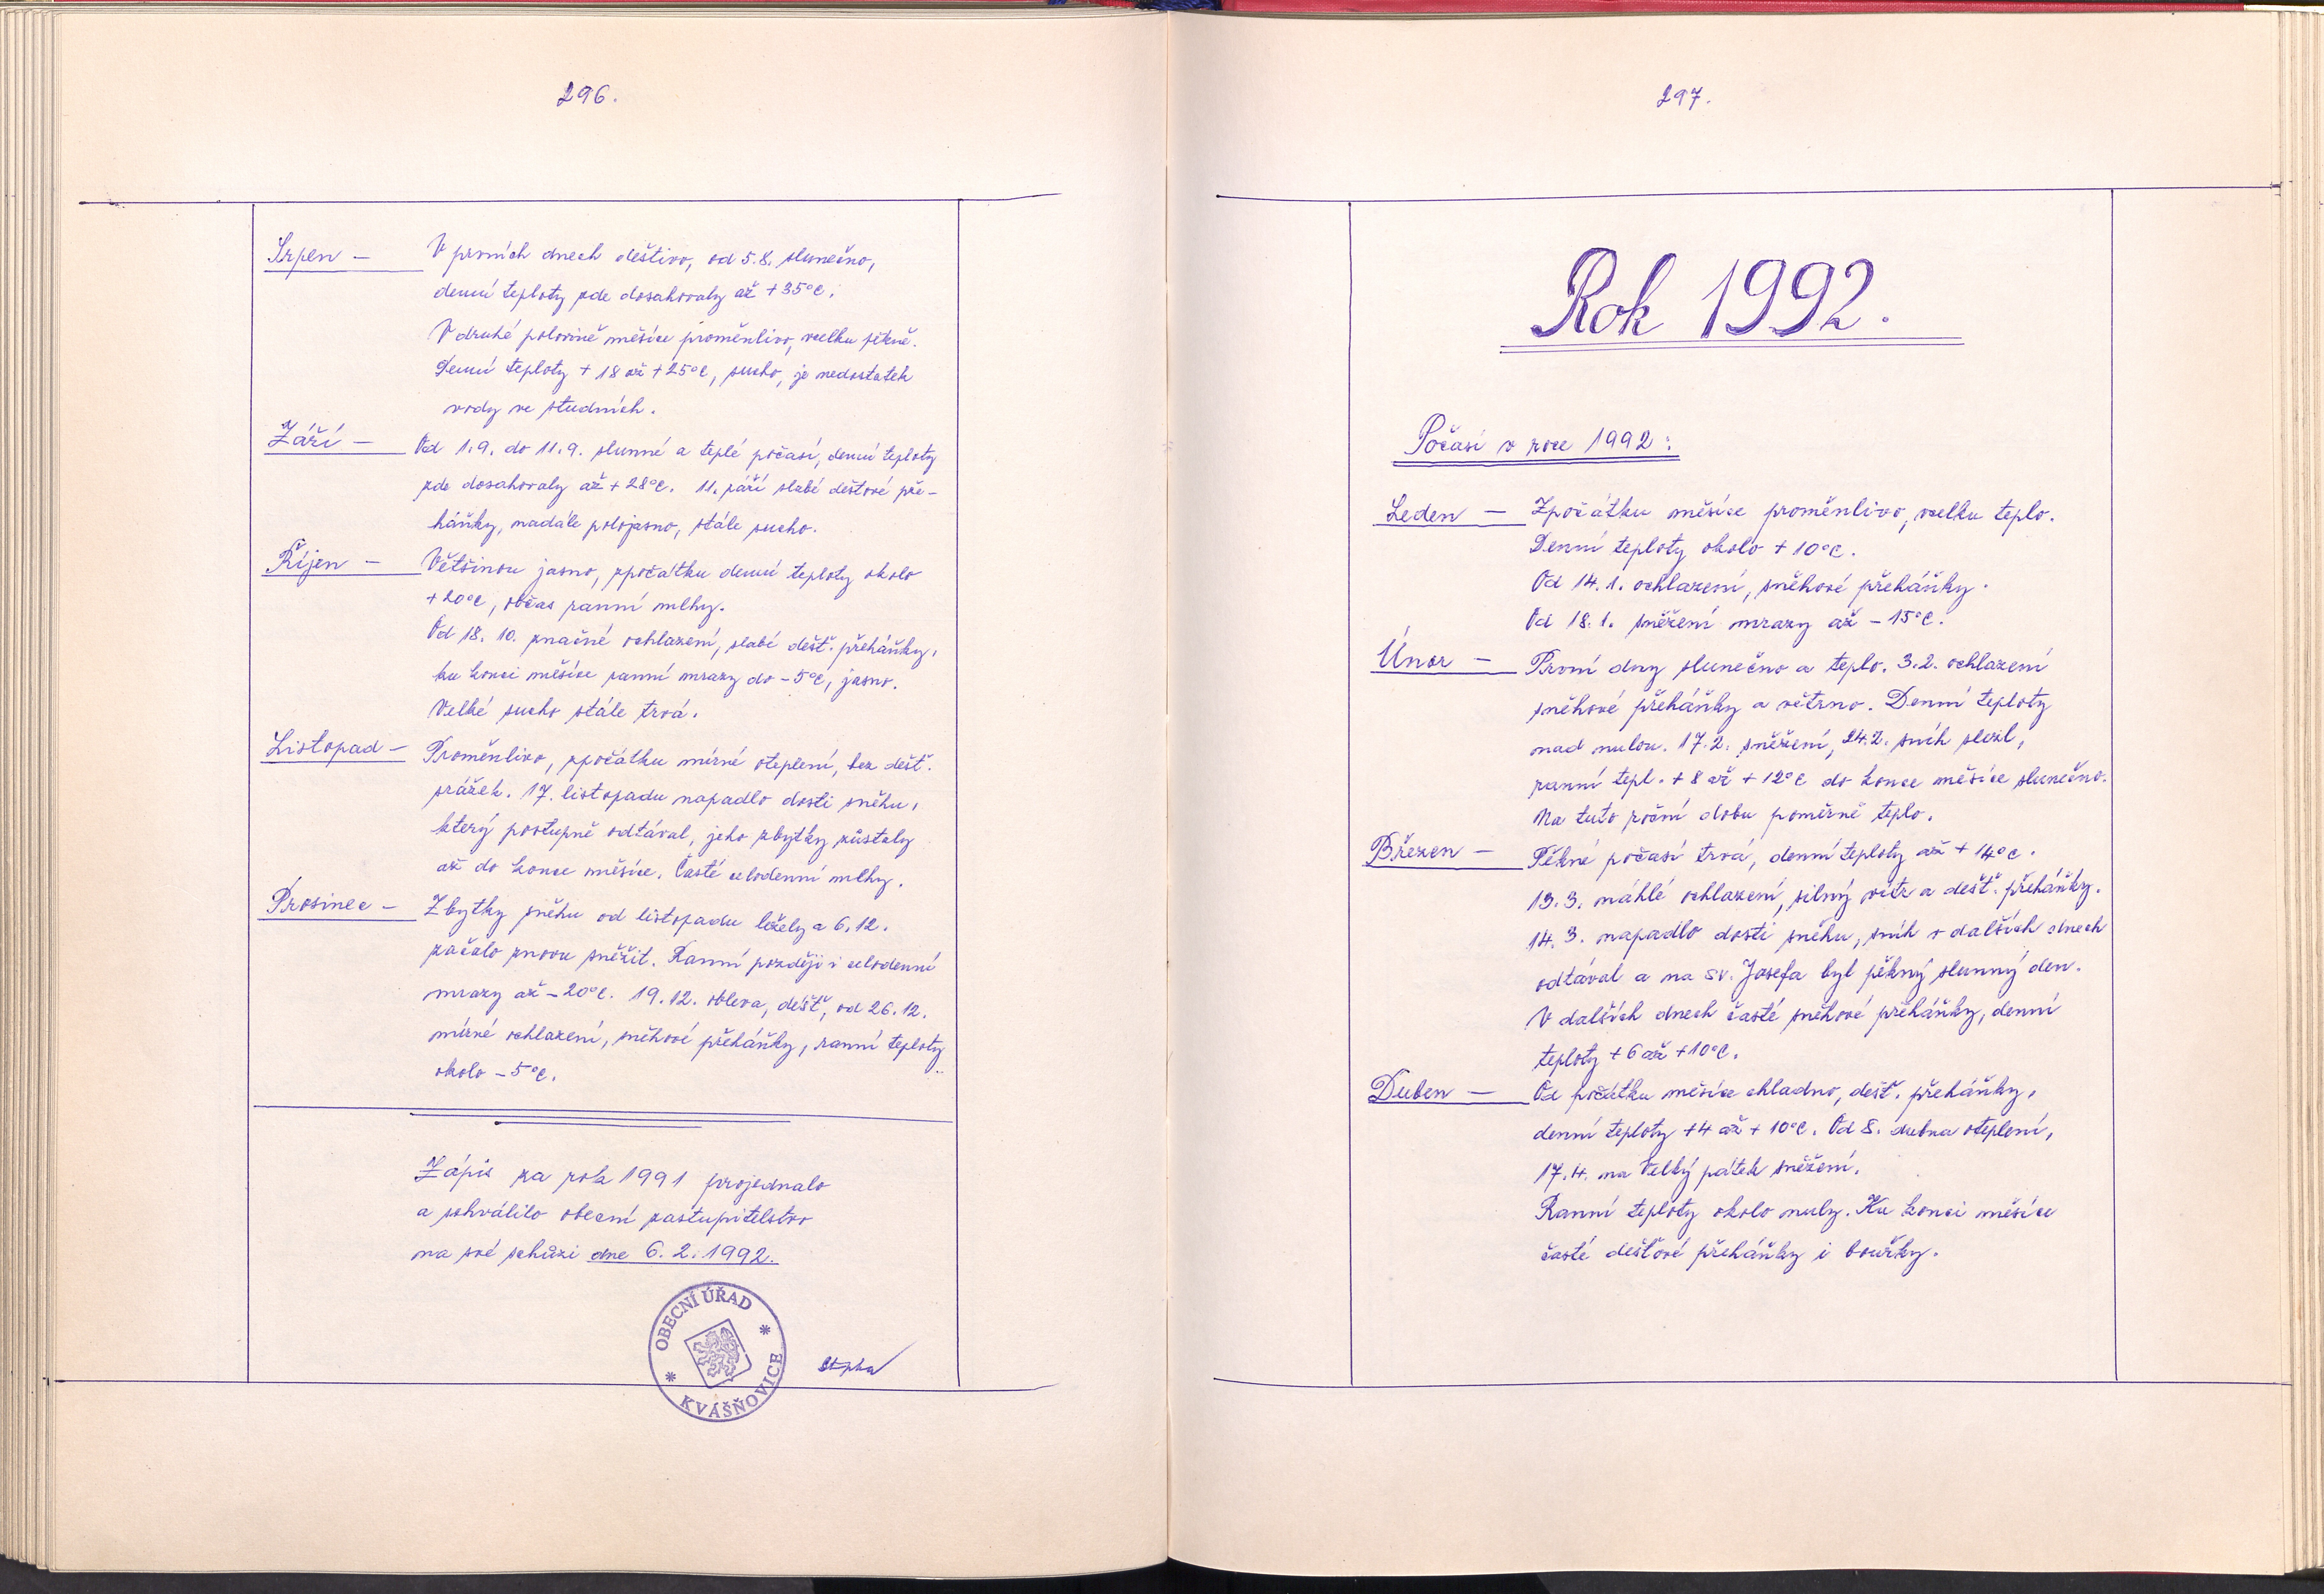 296.
Srpen - V prvních dnech deštivo, od 5.8. slunečno,
denní teploty zde dosahovaly až +35°C.
V druhé polovině měsíce proměnlivo, vcelku pěkně.
Denní teploty +18 až +25°C, sucho, je nedostatek
vody ve studních.
Září - Od 1.9. do 11.9. slunné a teplé počasí, denní teploty
zde dosahovaly až +28°C. 11. září slabé dešťové pře-
háňky, nadále polojasno, stále sucho.
Říjen - Většinou jasno, zpočátku denní teploty okolo
+20°C, občas ranní mlhy.
Od 18. 10. značné ochlazení, slabé dešť. přeháňky,
ku konci měsíce ranní mrazy do -5°C, jasno.
Velké sucho stále trvá.
Listopad - Proměnlivo, zpočátku mírné oteplení, bez dešť.
srážek. 17. listopadu napadlo dosti sněhu,
který postupně odtával, jeho zbytky zůstaly
až do konce měsíce. Časté celodenní mlhy.
Prosinec - Zbytky sněhu od listopadu ležely a 6.12.
začalo znovu sněžit. Ranní později i celodenní
mrazy až -20°C. 19.12. obleva, déšť, od 26.12.
mírné ochlazení, sněhové přeháňky, ranní teploty
okolo -5°C.
Zápis za rok 1991 projednalo
a schválilo obecní zastupitelstvo
na své schůzi dne 6. 2. 1992.
OBECNÍ ÚŘAD
* KVÁŠŇOVICE *
297.
Rok 1992.
Počasí v roce 1992:
Leden - Zpočátku měsíce proměnlivo, vcelku teplo.
Denní teploty okolo +10°C.
Od 14.1. ochlazení, sněhové přeháňky.
Od 18.1. sněžení mrazy až -15°C.
Únor - První dny slunečno a teplo. 3.2. ochlazení
sněhové přeháňky a větrno. Denní teploty
nad nulou. 17.2. sněžení, 24.2. sníh slezl,
ranní tepl. +8 až +12°C do konce měsíce slunečno.
Na tuto roční dobu poměrně teplo.
Březen - Pěkné počasí trvá, denní teploty až +14°C.
13.3. náhlé ochlazení, silný vítr a dešť. přeháňky.
14. 3. napadlo dosti sněhu, sníh v dalších dnech
odtával a na sv. Josefa byl pěkný slunný den.
V dalších dnech časté sněhové přeháňky, denní
teploty +6 až +10°C.
Duben - Od počátku měsíce chladno, dešť. přeháňky,
denní teploty +4 až +10°C. Od 8. dubna oteplení,
17.4. na Velký pátek sněžení.
Ranní teploty okolo nuly. Ku konci měsíce
časté dešťové přeháňky i bouřky.